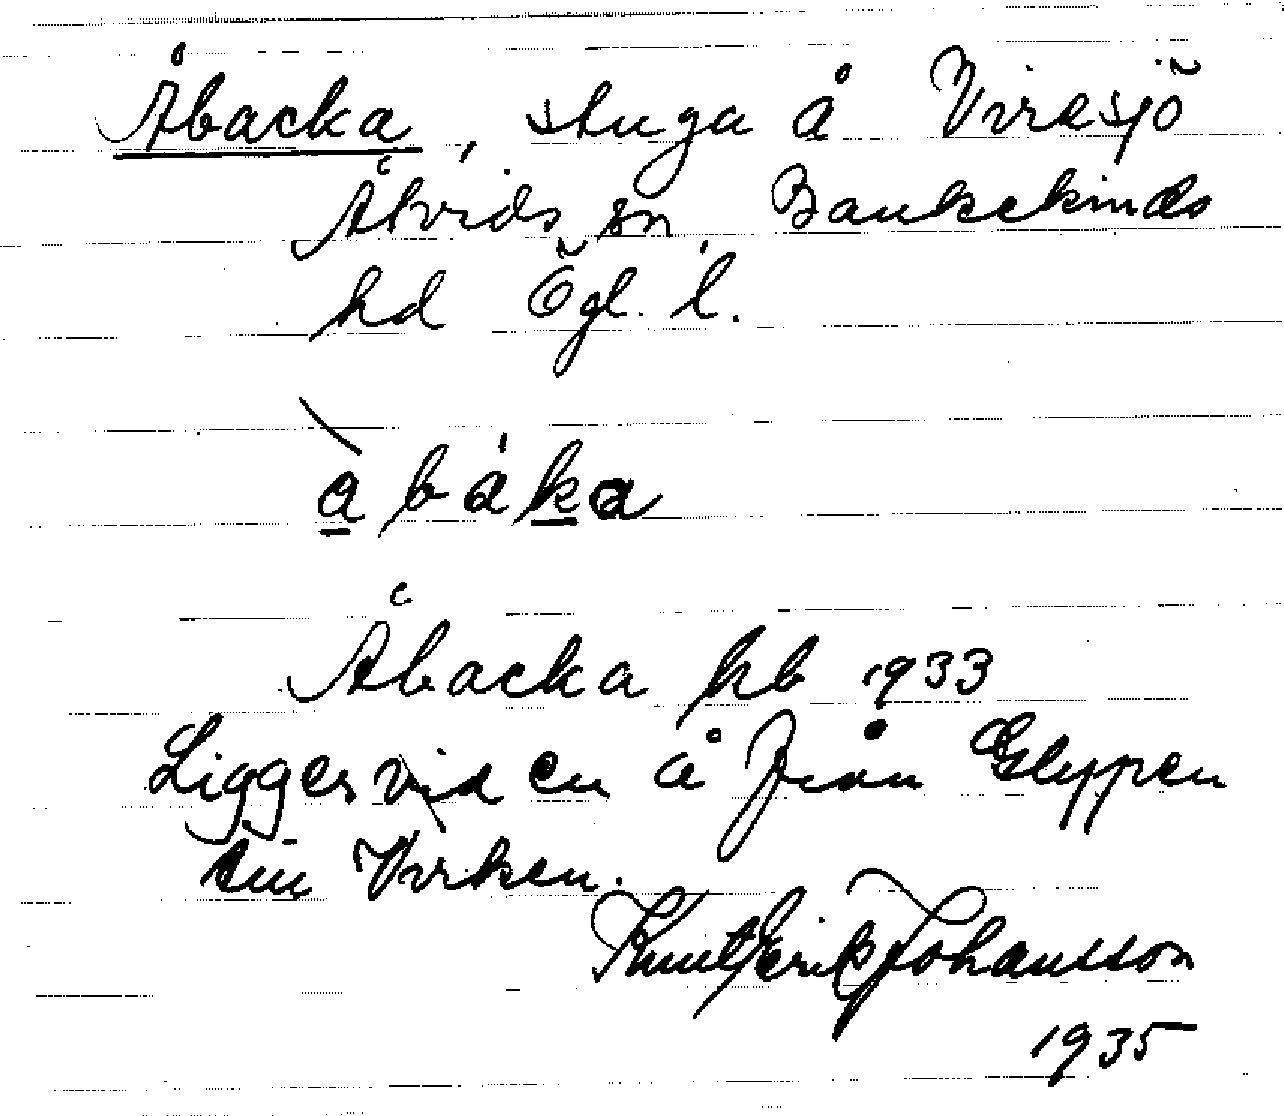 Åbacka, stuga å Viresjö
Åtvids sn Bankekinds
hd Ögl. l.
Åbacka kb 1933
Ligger vid en å från Glypen
till Virken.
Knut Erik Johansson
1935